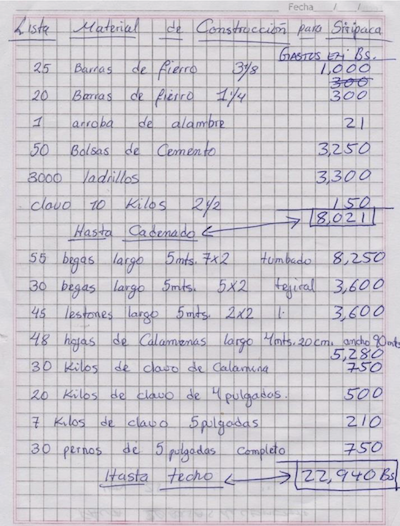 Fecha / /
Lista Material de Construcción para Siripaca
GASTOS EN BS.
25 Barras de fierro 3/8 1,000
300
20 Barras de fierro 1/4 300
1 arroba de alambre 21
50 Bolsas de Cemento 3,250
3000 ladrillos 3,300
clavo 10 Kilos 2 1/2 150
Hasta Cadenado 8,021
55 begas largo 5mts. 7x2 tumbado 8,250
30 begas largo 5mts. 5x2 tejiral 3,600
45 lestones largo 5mts. 2x2 3,600
48 hojas de Calamenas largo 4mts. 20cm. ancho 90mts
5,280
30 Kilos de clavo de Calamina 750
20 Kilos de clavo de 4 pulgadas. 500
7 Kilos de clavo 5 pulgadas 210
30 pernos de 5 pulgadas completo 750
Hasta techo 22,940 Bs